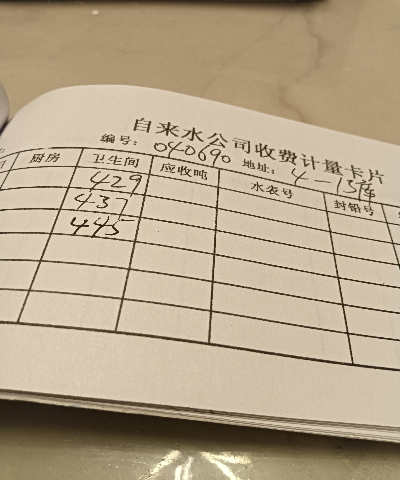 自来水公司收费计量卡片
编号: 040690 地址: 4-15
厨房 卫生间 应收吨 水表号 封铅号
429
437
445